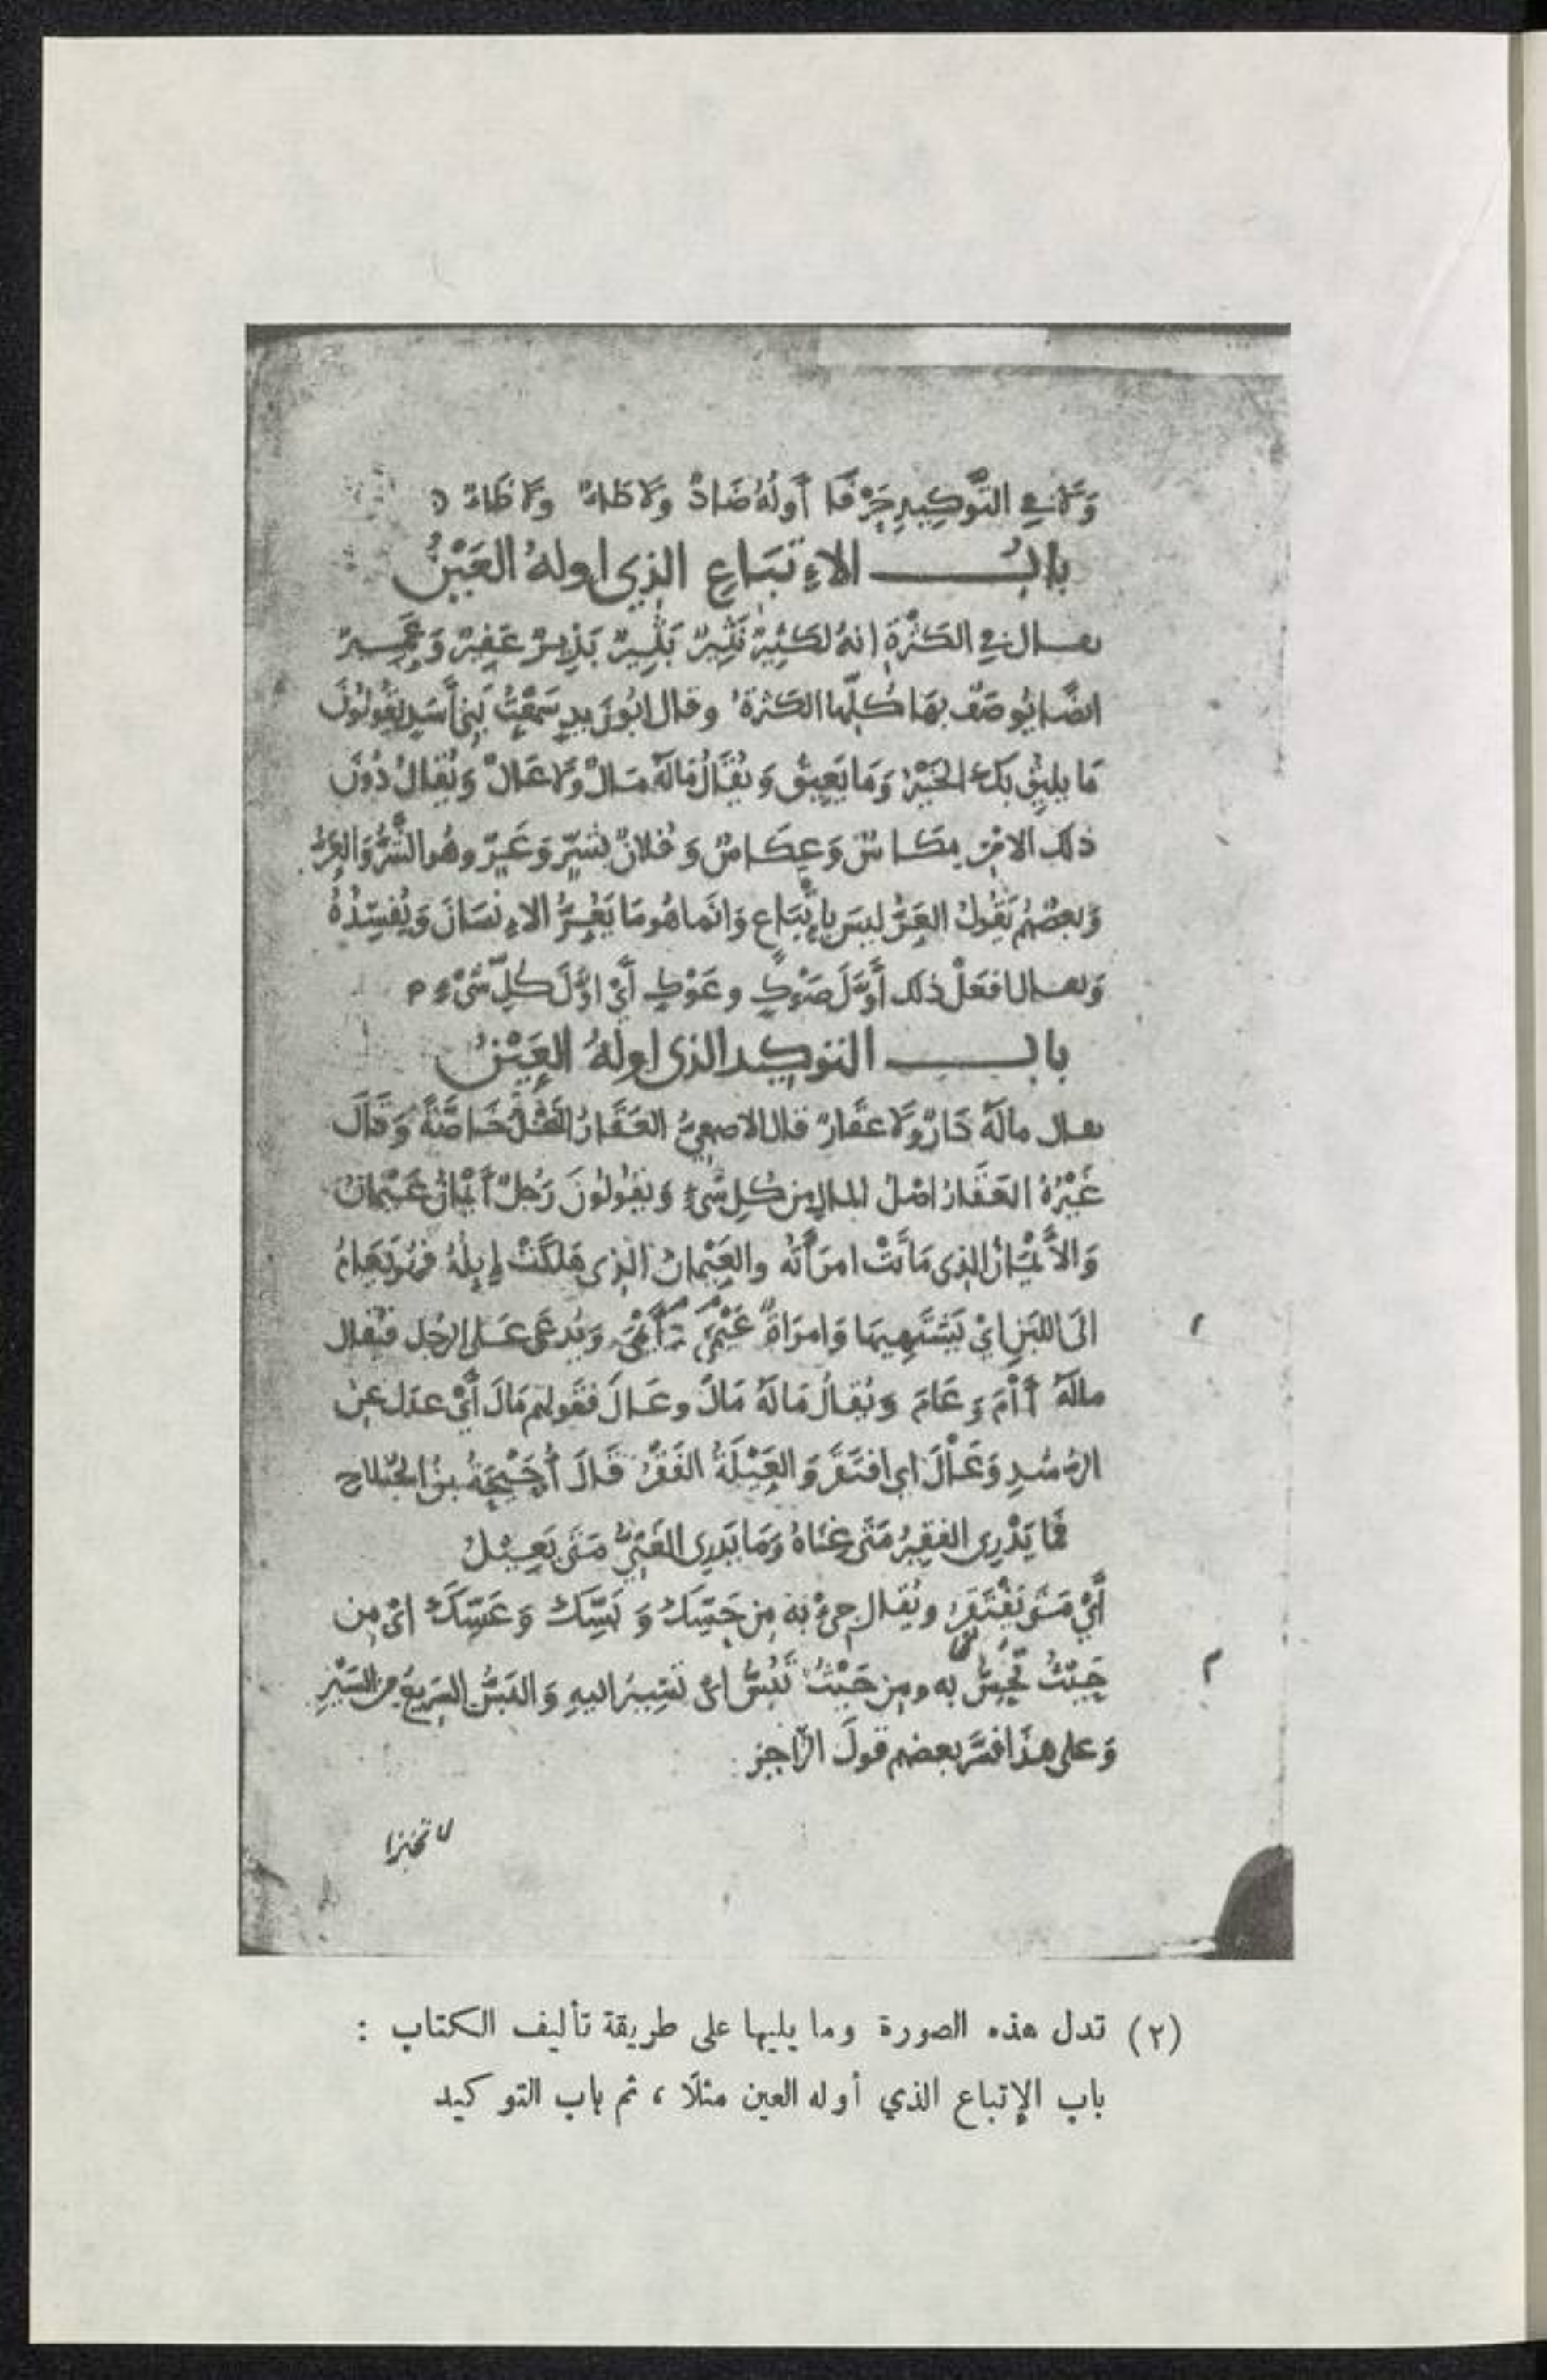 وَلا في التَّوْكِيدِ حَرْفًا أَوَّلُهُ ضَادٌ وَلا طَاءٌ وَلا ظَاءٌ
بابُ الإِتبَاعِ الذِي اوله العَيْنُ
يقال في الكَثْرَةِ انهُ لكَثِيرٌ نَثِيرٌ بَثِيرٌ بَذِيرٌ عَفِيرٌ وَعَمِيرٌ
ايضًا يُوصَفُ بهَا كُلّها الكَثرة وقال ابُو زَيدٍ سَمِعْتُ بَنِي أَسَدٍ يَقُولُونَ
مَا يلِيقُ بِكَ الخَيْرُ وَمَا يَعِيقُ وَيُقَالُ مَالَهُ مَالٌ وَلا عَالٌ وَيُقَالُ دُونَ
ذلك الامْرِ مِكَاسٌ وَعِكَاسٌ وَفُلانٌ بشَرٍّ وَعَرٍّ وهُو الشَّرُّ وَالعَرُّ
وَبعضُهُم يَقُولُ العَرُّ ليسَ بِإِتْبَاع وَانّما هُو مَا يَعُرُّ الإنسَانَ وَيُفسِدُهُ
وَيقال افعَلْ ذلك أَوَّلَ صَوْكٍ وعَوْكٍ أَيْ اوَّلَ كُلِّ شَيْءٍ
باب التوكيد الذى اولهُ العَيْنُ
يقال مالَهُ دَارٌ وَلا عَقَارٌ قال الاصمعِيُّ العَقَارُ النَّخْلُ خَاصَّةً وَقَالَ
غَيْرُهُ العَقَارُ اصْلُ المالِ مِن كُلِ شَيءٍ وَيقُولُونَ رَجُلٌ أَيْمَانُ عَيْمَانُ
وَالأَيْمَانُ الذِى مَاتَتْ امرَأَتُه والعَيْمانُ الذِى هَلكَتْ إِبِلُهُ فهُوَ يَعَامُ
الَى اللبَنِ ايْ يَشْتَهِيهَا وَامرَاةٌ عَيْمَى أَيْمَى وَيُدعَى عَلى الرجُل فيُقال
مالَهُ آمَ وَعَامَ وَيُقالُ مَالَهُ مَالَ وعَالَ فقَولهم مَالَ أَيْ عدَل عِن
الرُشدِ وَعَالَ اي افتَقَرَ وَالعَيْلَةُ الفَقْرُ قَالَ أُحَيْحَةُ بنُ الجُلاح
فَمَا يَدْرِى الفقِيرُ مَتَى غِنَاهُ وَمَا يَدرِى الغَنِيُّ مَتَى يَعِيلُ
أَيْ مَتَى يَفْتَقِرُ ويُقال جِيءْ به مِن حَسِّكَ وَبَسِّكَ وَعَسِّكَ اىْ مِن
حَيْثُ تُحِسُّ به ومِن حَيْثُ تَبُسُّ اى تَسِيرُ اليهِ وَالبَسُّ السَرِيعُ مِنَ السَيْرِ
وَعلى هذَا فسَّرَ بعضهم قولَ الرَّاجِز:
لا تخبزا
(٢) تدل هذه الصورة وما يليها على طريقة تأليف الكتاب :
باب الإتباع الذي أوله العين مثلًا ، ثم باب التوكيد